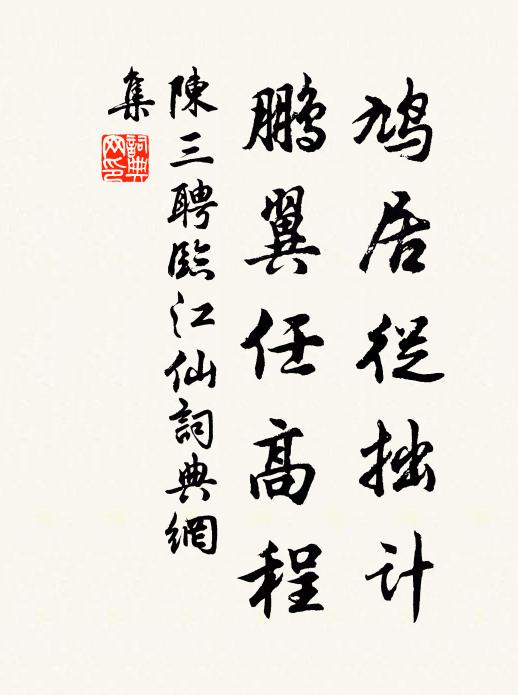 鳩居從拙計
鵬翼任高程
陳三聘臨江仙詞典網
集
詞典
网印